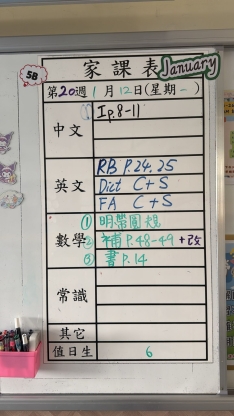 5B
家課表
January
第20週 1月12日(星期一)
中文
① Ip.8-11
英文
RB P.24, 25
Dict C+S
FA C+S
數學
① 明帶圓規
② 補 P.48-49 +改
③ 書 P.14
常識
其它
值日生
6